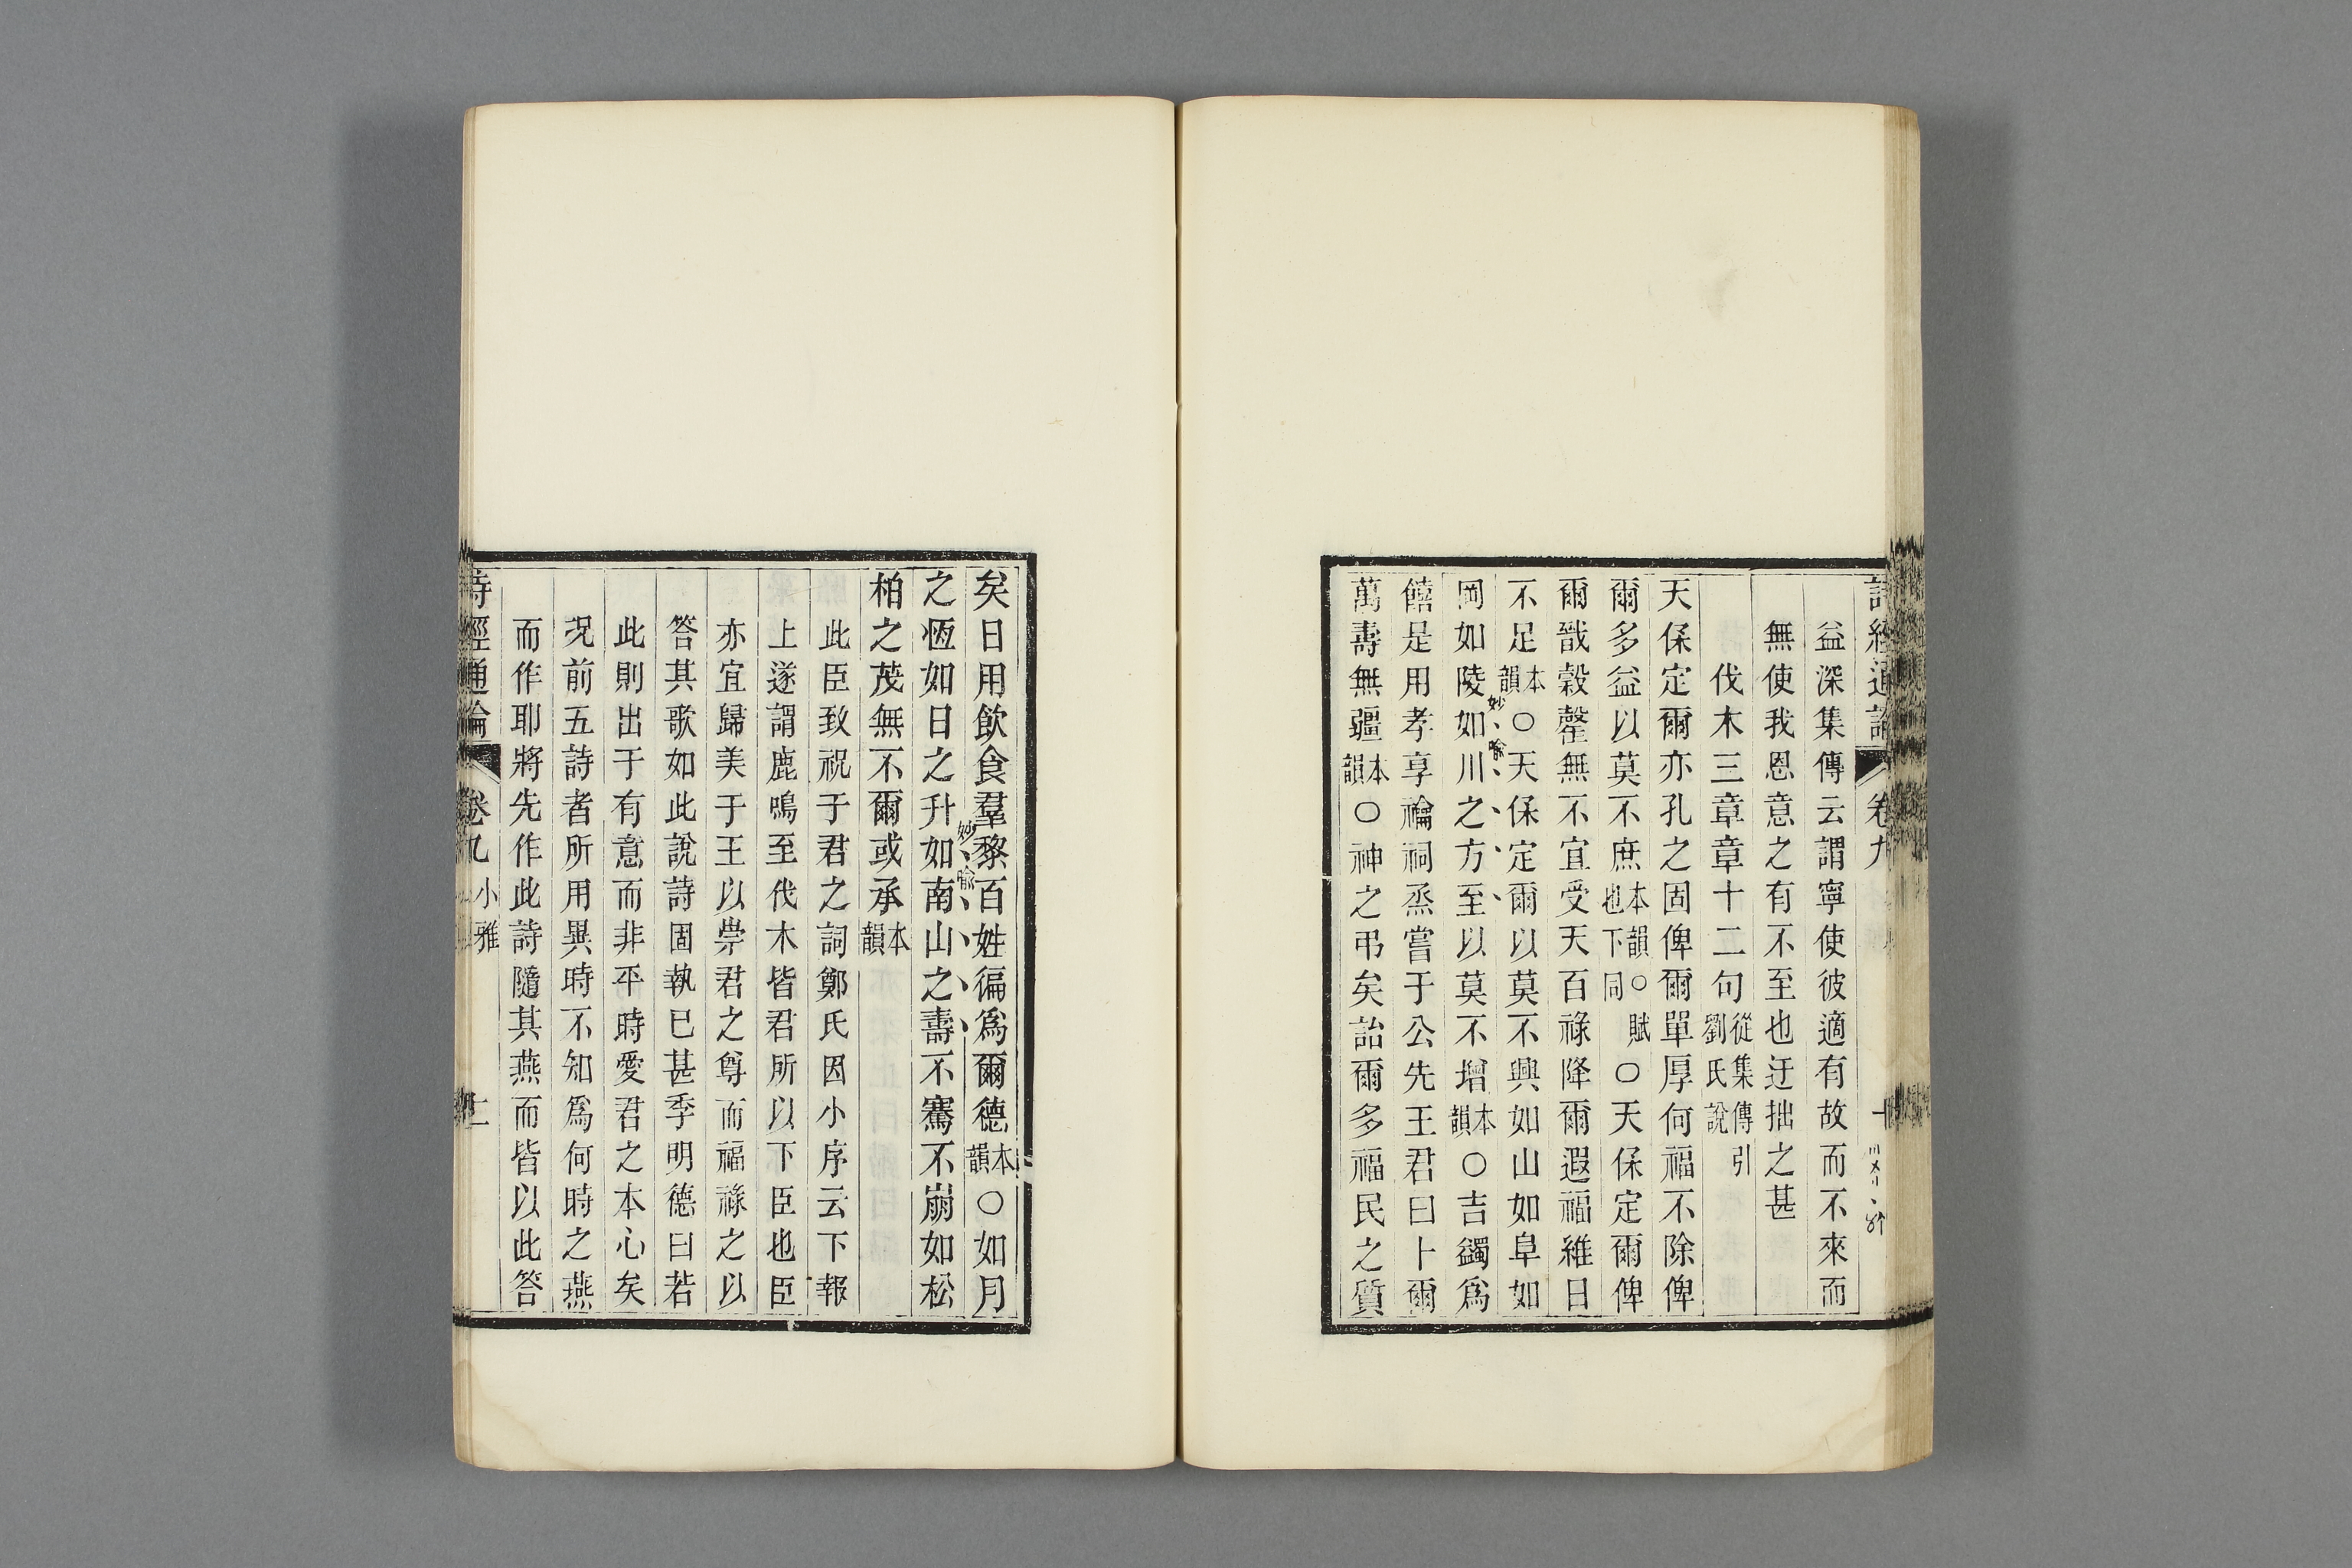 詩經通論 卷九
益深集傳云謂寧使彼適有故而不來而
無使我恩意之有不至也迂拙之甚
伐木三章章十二句從集傳引劉氏說
天保定爾亦孔之固俾爾單厚何福不除俾
爾多益以莫不庶本韻○賦也下同○天保定爾俾
爾戩穀罄無不宜受天百祿降爾遐福維日
不足本韻○天保定爾以莫不興如山如阜如
岡如陵如川之方至以莫不增本韻○吉蠲爲
妙喻
饎是用孝享禴祠烝嘗于公先王君曰卜爾
萬壽無疆本韻○神之弔矣詒爾多福民之質
矣日用飲食羣黎百姓徧爲爾德本韻○如月
之恆如日之升如南山之壽不騫不崩如松
妙喻
柏之茂無不爾或承本韻
此臣致祝于君之詞鄭氏因小序云下報
上遂謂鹿鳴至伐木皆君所以下臣也臣
亦宜歸美于王以崇君之尊而福祿之以
答其歌如此說詩固執已甚季明德曰若
此則出于有意而非平時愛君之本心矣
況前五詩者所用異時不知爲何時之燕
而作耶將先作此詩隨其燕而皆以此答
詩經通論 卷九 小雅